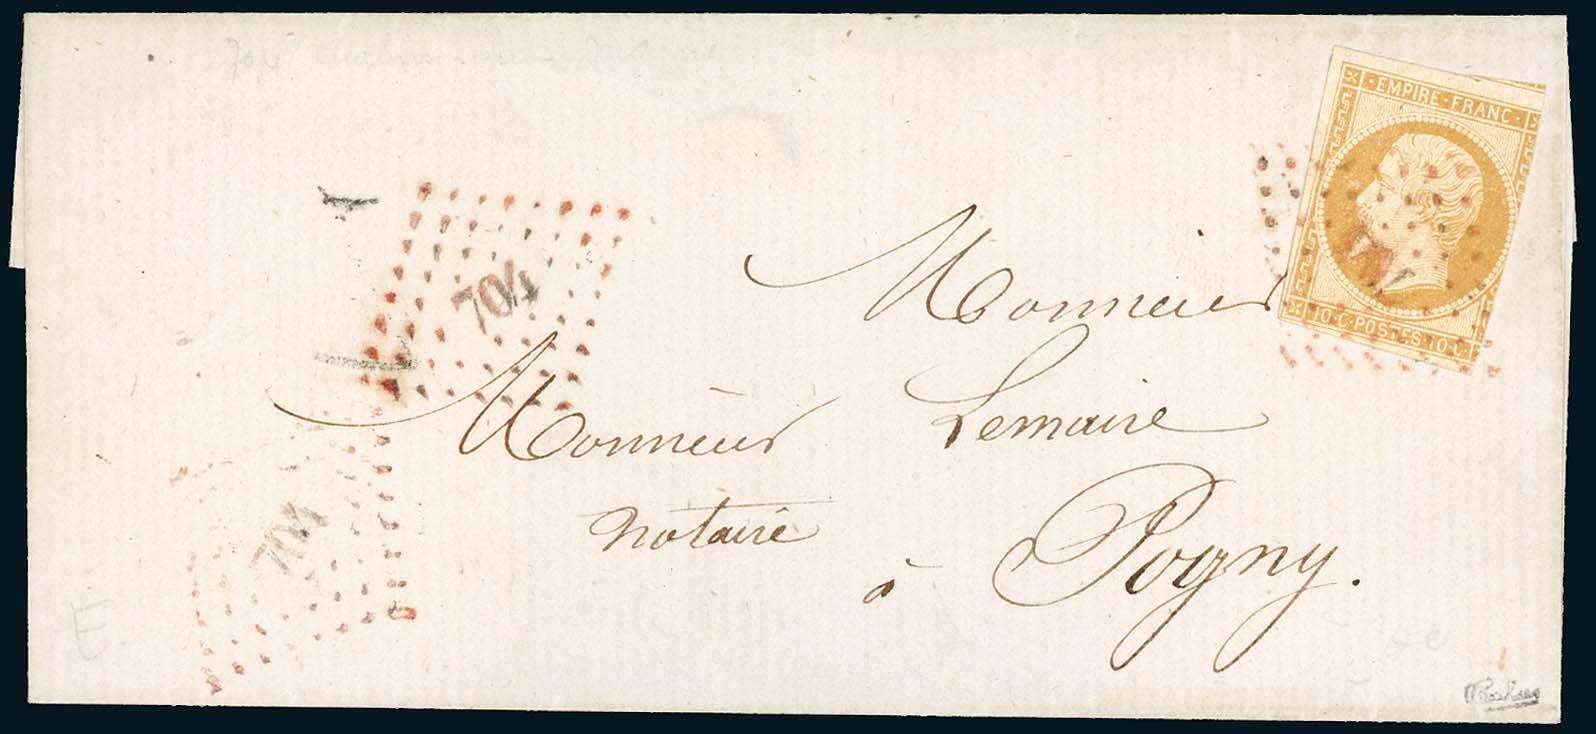 EMPIRE · FRANC ·
10 · C · POSTES · 10 · C ·
704
704
Monsieur
Monsieur Lemaire
notaire
à Pogny.
E